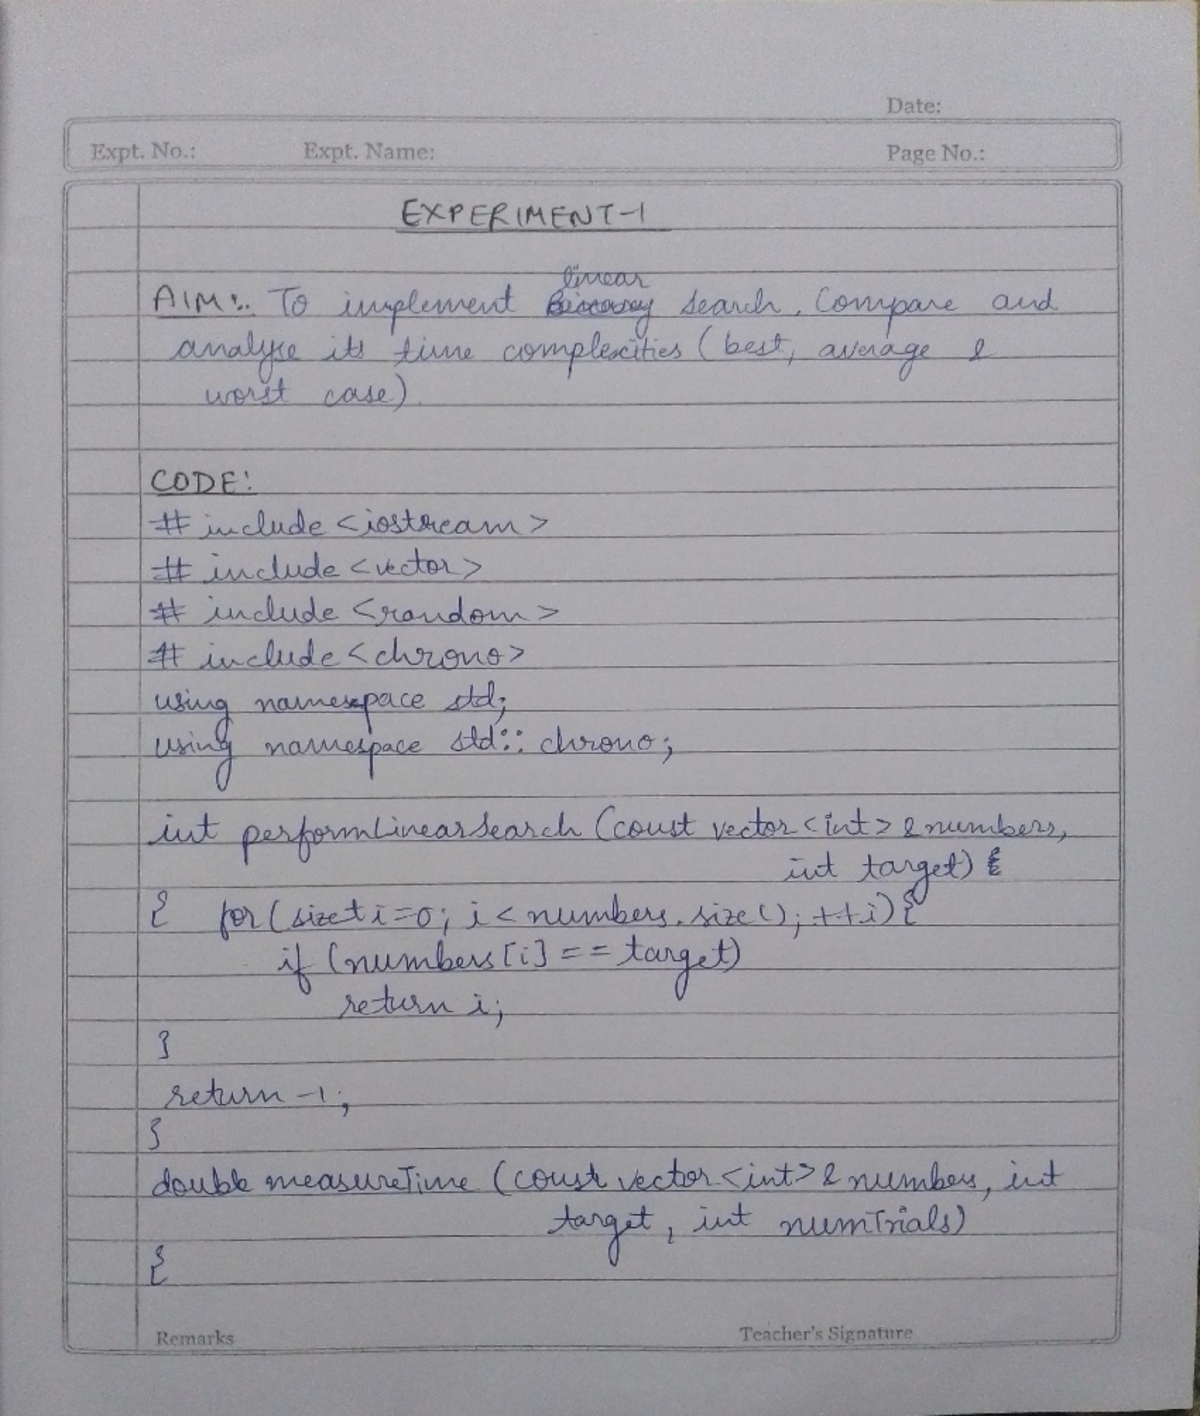 Date:
Expt. No.: Expt. Name: Page No.:
EXPERIMENT-1
linear
AIM:. To implement Binary search. Compare and
analyse its time complexities (best, average &
worst case).
CODE:
# include <iostream>
# include <vector>
# include <random>
# include <chrono>
using namespace std;
using namespace std:: chrono;
int performLinearSearch (const vector <int> & numbers,
int target) {
{ for (size t i=0; i < numbers.size(); ++i) {
if (numbers[i] == target)
return i;
}
return -1;
}
double measureTime (const vector <int> & numbers, int
target, int numTrials)
{
Remarks Teacher's Signature